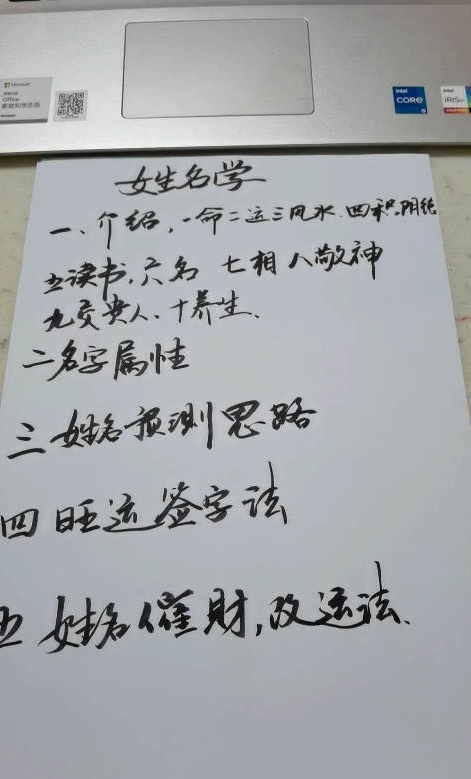 Microsoft
Office
家庭和学生版
intel
CORE
i5
intel
iRIS xe
GRAPHICS
姓名学
一、介绍,一命二运三风水.四积阴德
五读书,六名 七相 八敬神
九交贵人、十养生.
二名字属性
三 姓名预测思路
四 旺运签字法
五 姓名催财,改运法.